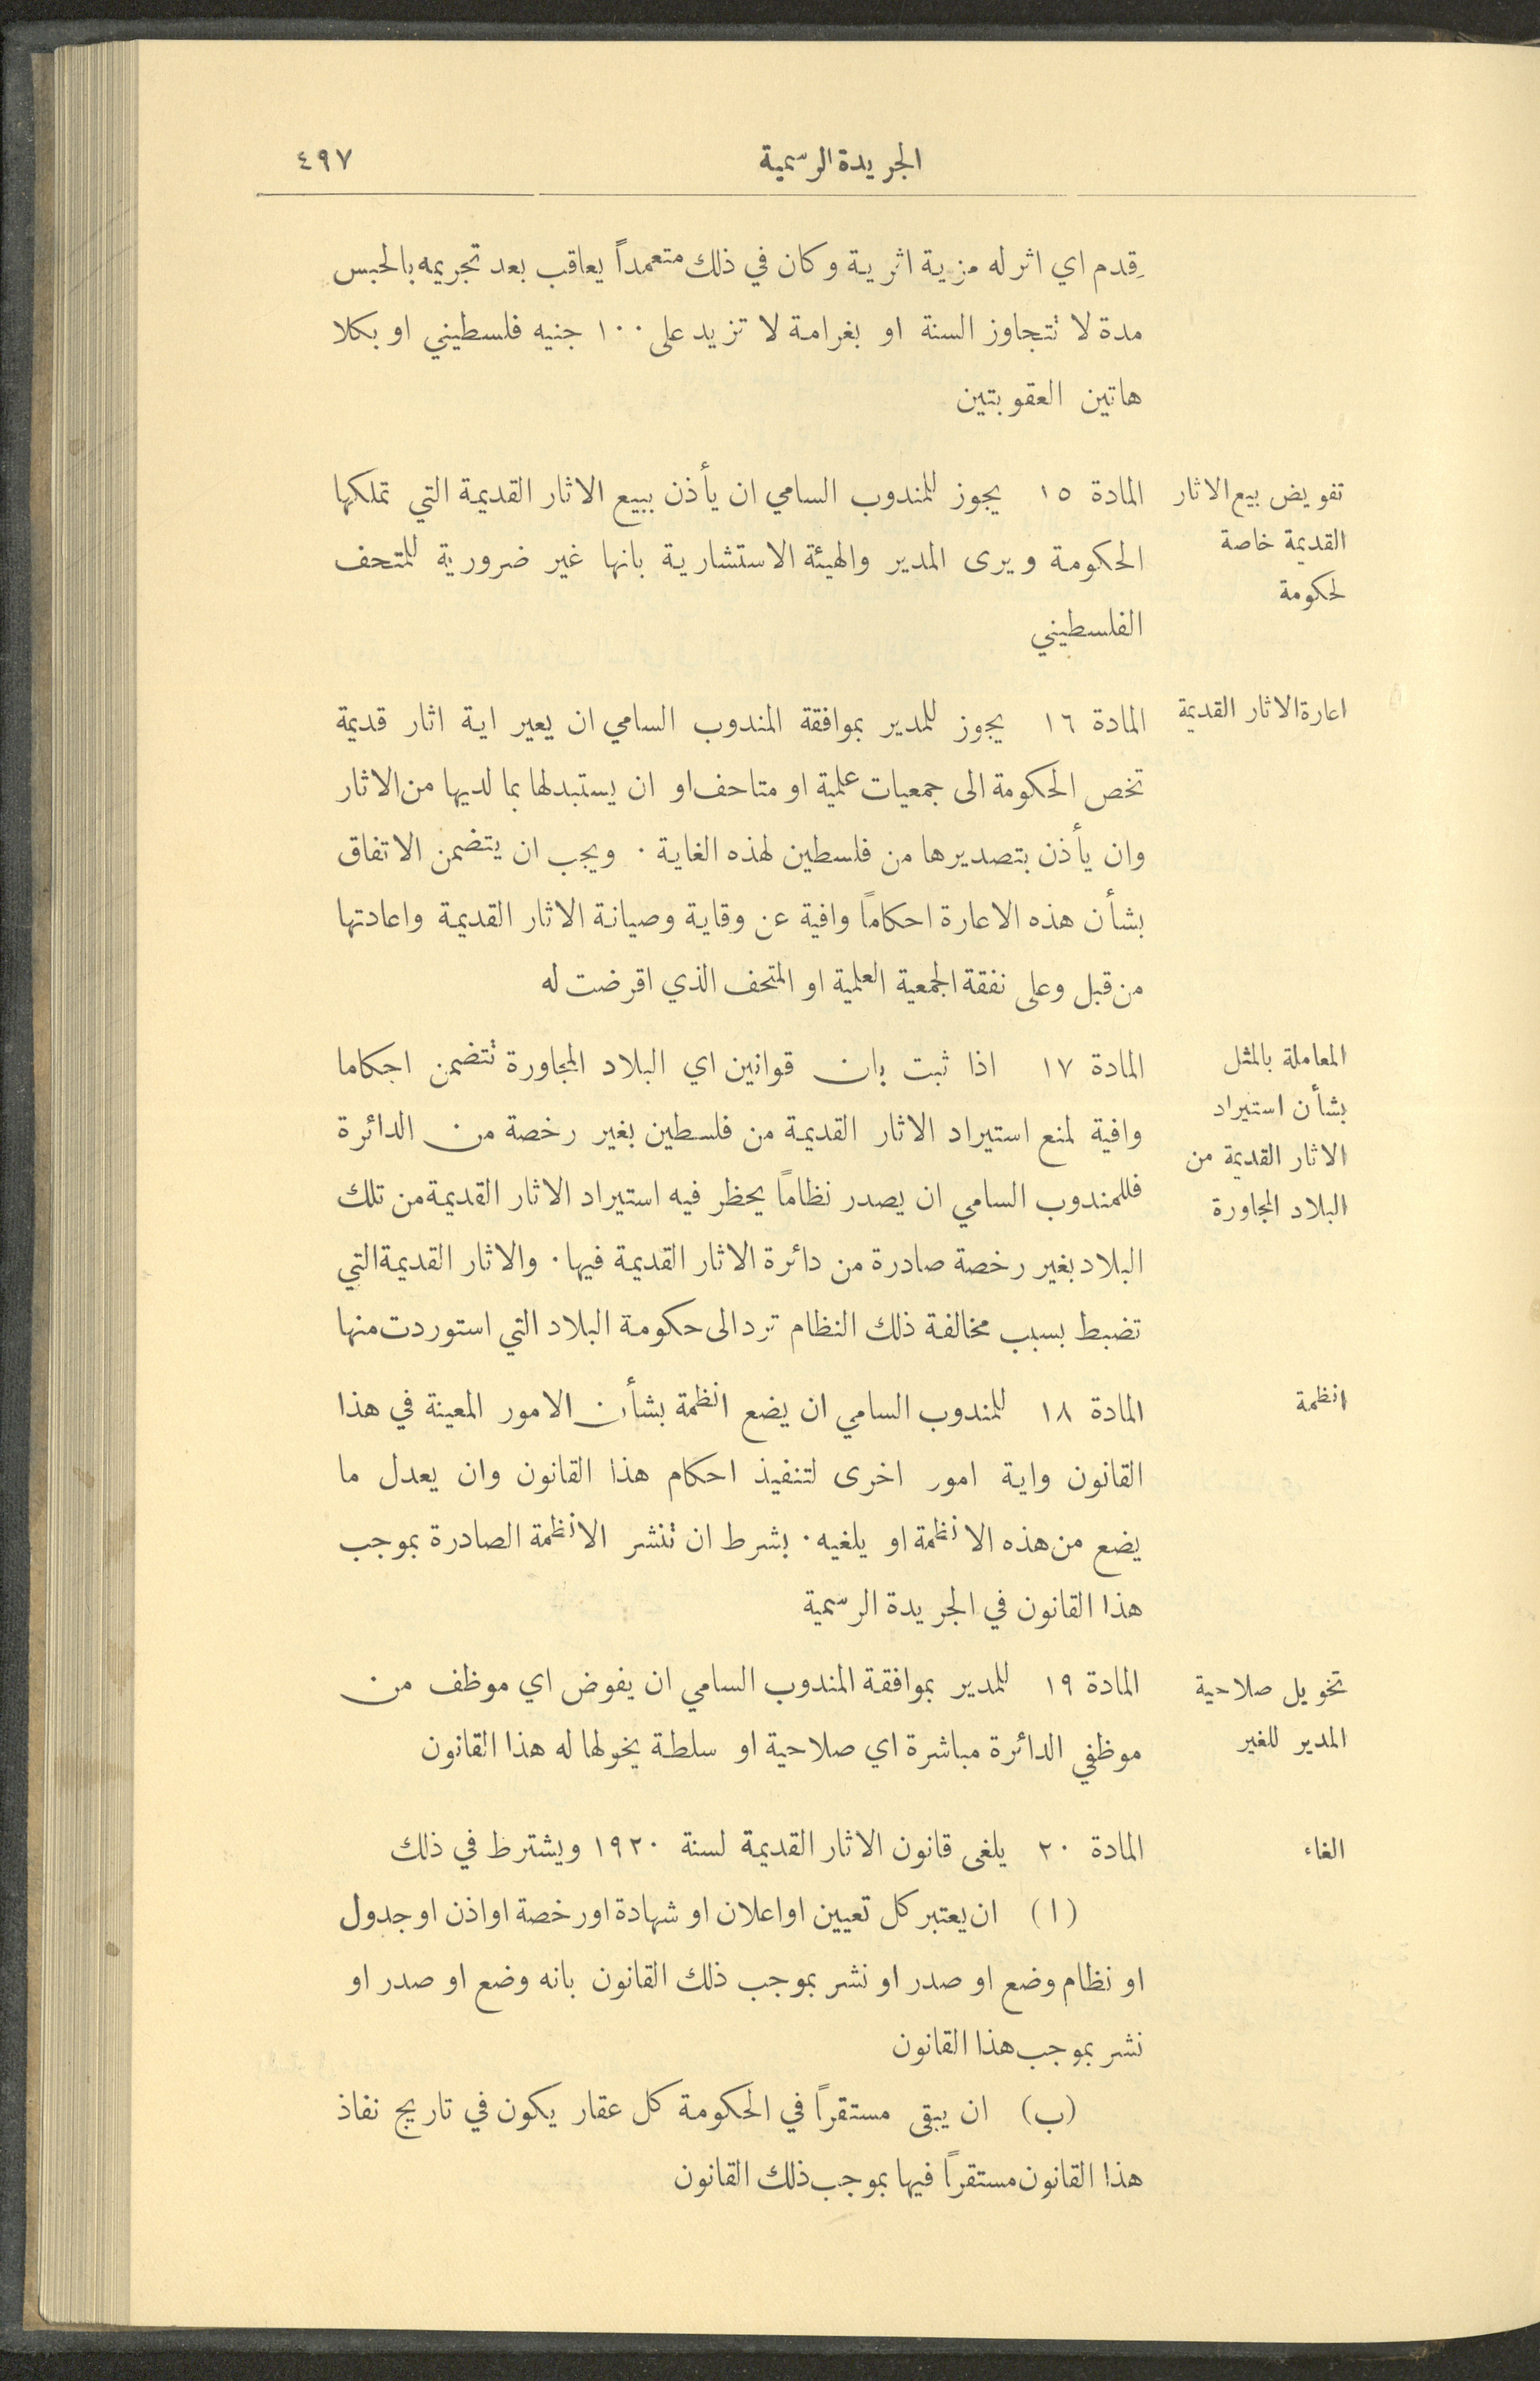 الجريدة الرسمية
٤٩٧
قدم اي اثر له مزية اثرية وكان في ذلك متعمداً يعاقب بعد تجريمه بالحبس
مدة لا تتجاوز السنة او بغرامة لا تزيد على ١٠٠ جنيه فلسطيني او بكلا
هاتين العقوبتين
تفويض بيع الاثار
القديمة خاصة
لحكومة
المادة ١٥ يجوز للمندوب السامي ان يأذن ببيع الاثار القديمة التي تملكها
الحكومة ويرى المدير والهيئة الاستشارية بانها غير ضرورية للمتحف
الفلسطيني
اعارة الاثار القديمة
المادة ١٦ يجوز للمدير بموافقة المندوب السامي ان يعير اية اثار قديمة
تخص الحكومة الى جمعيات علمية او متاحف او ان يستبدلها بما لديها من الاثار
وان يأذن بتصديرها من فلسطين لهذه الغاية . ويجب ان يتضمن الاتفاق
بشأن هذه الاعارة احكاماً وافية عن وقاية وصيانة الاثار القديمة واعادتها
من قبل وعلى نفقة الجمعية العلمية او المتحف الذي اقرضت له
المعاملة بالمثل
بشأن استيراد
الاثار القديمة من
البلاد المجاورة
المادة ١٧ اذا ثبت بان قوانين اي البلاد المجاورة تتضمن اجكاما
وافية لمنع استيراد الاثار القديمة من فلسطين بغير رخصة من الدائرة
فللمندوب السامي ان يصدر نظاماً يحظر فيه استيراد الاثار القديمة من تلك
البلاد بغير رخصة صادرة من دائرة الاثار القديمة فيها . والاثار القديمة التي
تضبط بسبب مخالفة ذلك النظام ترد الى حكومة البلاد التي استوردت منها
انظمة
المادة ١٨ للمندوب السامي ان يضع انظمة بشأن الامور المعينة في هذا
القانون واية امور اخرى لتنفيذ احكام هذا القانون وان يعدل ما
يضع من هذه الانظمة او يلغيه . بشرط ان تنشر الانظمة الصادرة بموجب
هذا القانون في الجريدة الرسمية
تخويل صلاحية
المدير للغير
المادة ١٩ للمدير بموافقة المندوب السامي ان يفوض اي موظف من
موظفي الدائرة مباشرة اي صلاحية او سلطة يخولها له هذا القانون
الغاء
المادة ٢٠ يلغى قانون الاثار القديمة لسنة ١٩٢٠ ويشترط في ذلك
(ا) ان يعتبر كل تعيين او اعلان او شهادة او رخصة او اذن او جدول
او نظام وضع او صدر او نشر بموجب ذلك القانون بانه وضع او صدر او
نشر بموجب هذا القانون
(ب) ان يبقى مستقراً في الحكومة كل عقار يكون في تاريخ نفاذ
هذا القانون مستقراً فيها بموجب ذلك القانون